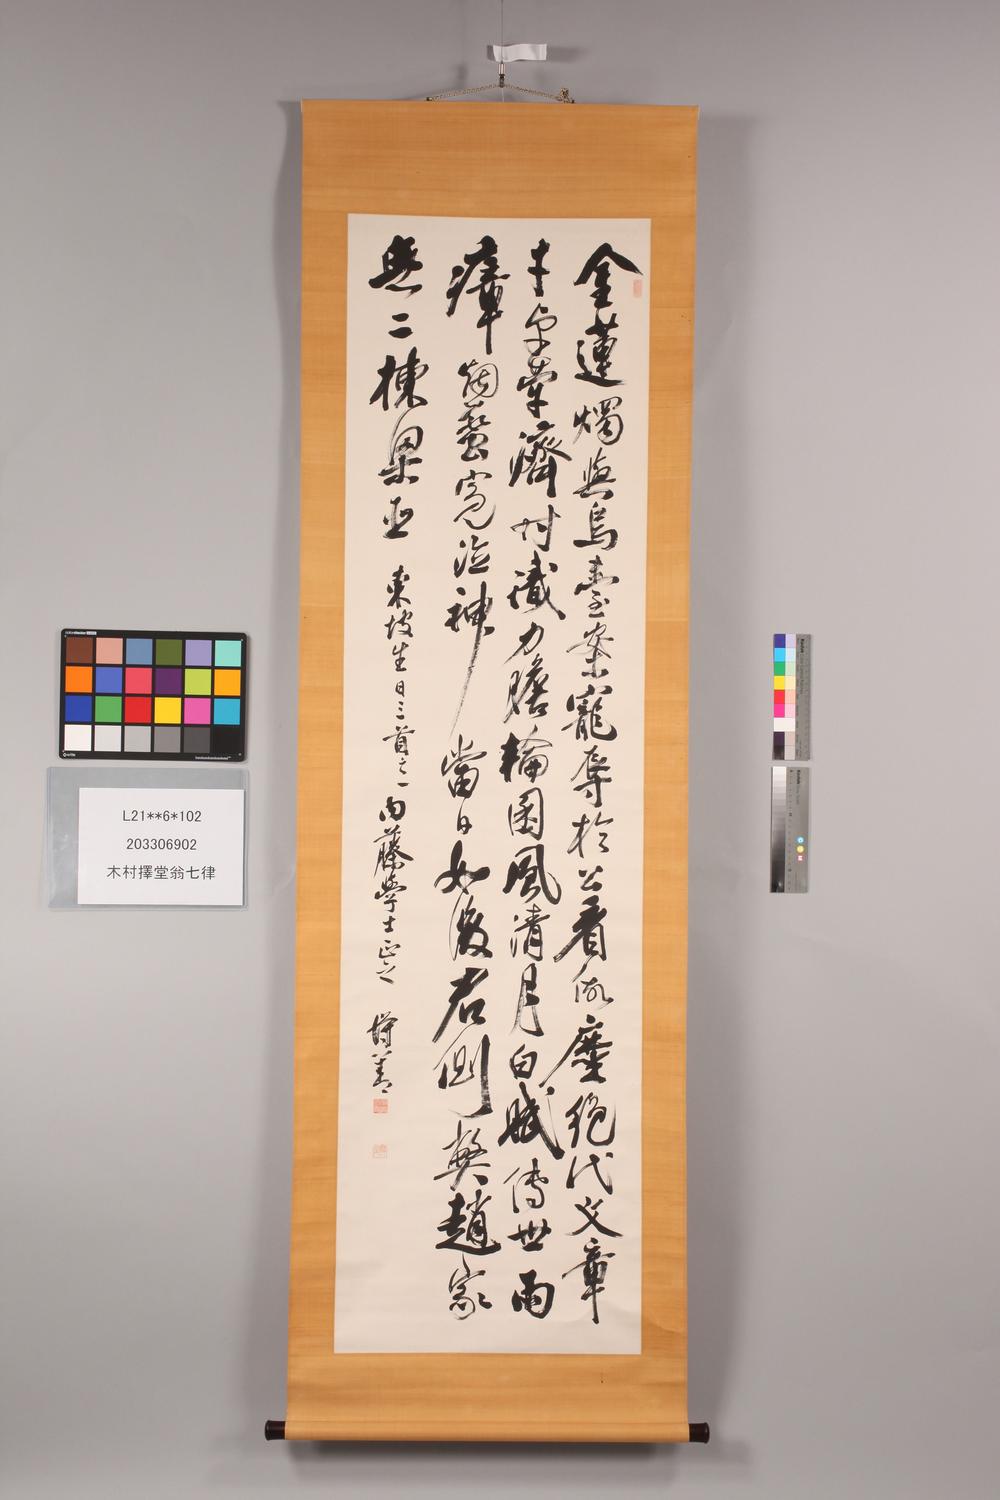 金蓮燭與烏臺案寵辱於公看似塵絕代文章
才卓犖濟時識力膽輪囷風清月白賦傳世雨
瘴烟蠻寃泣神當日如君側趙家
無二棟梁臣 東坡生日三首之一 内藤學士正之
L21**6*102
203306902
木村擇堂翁七律